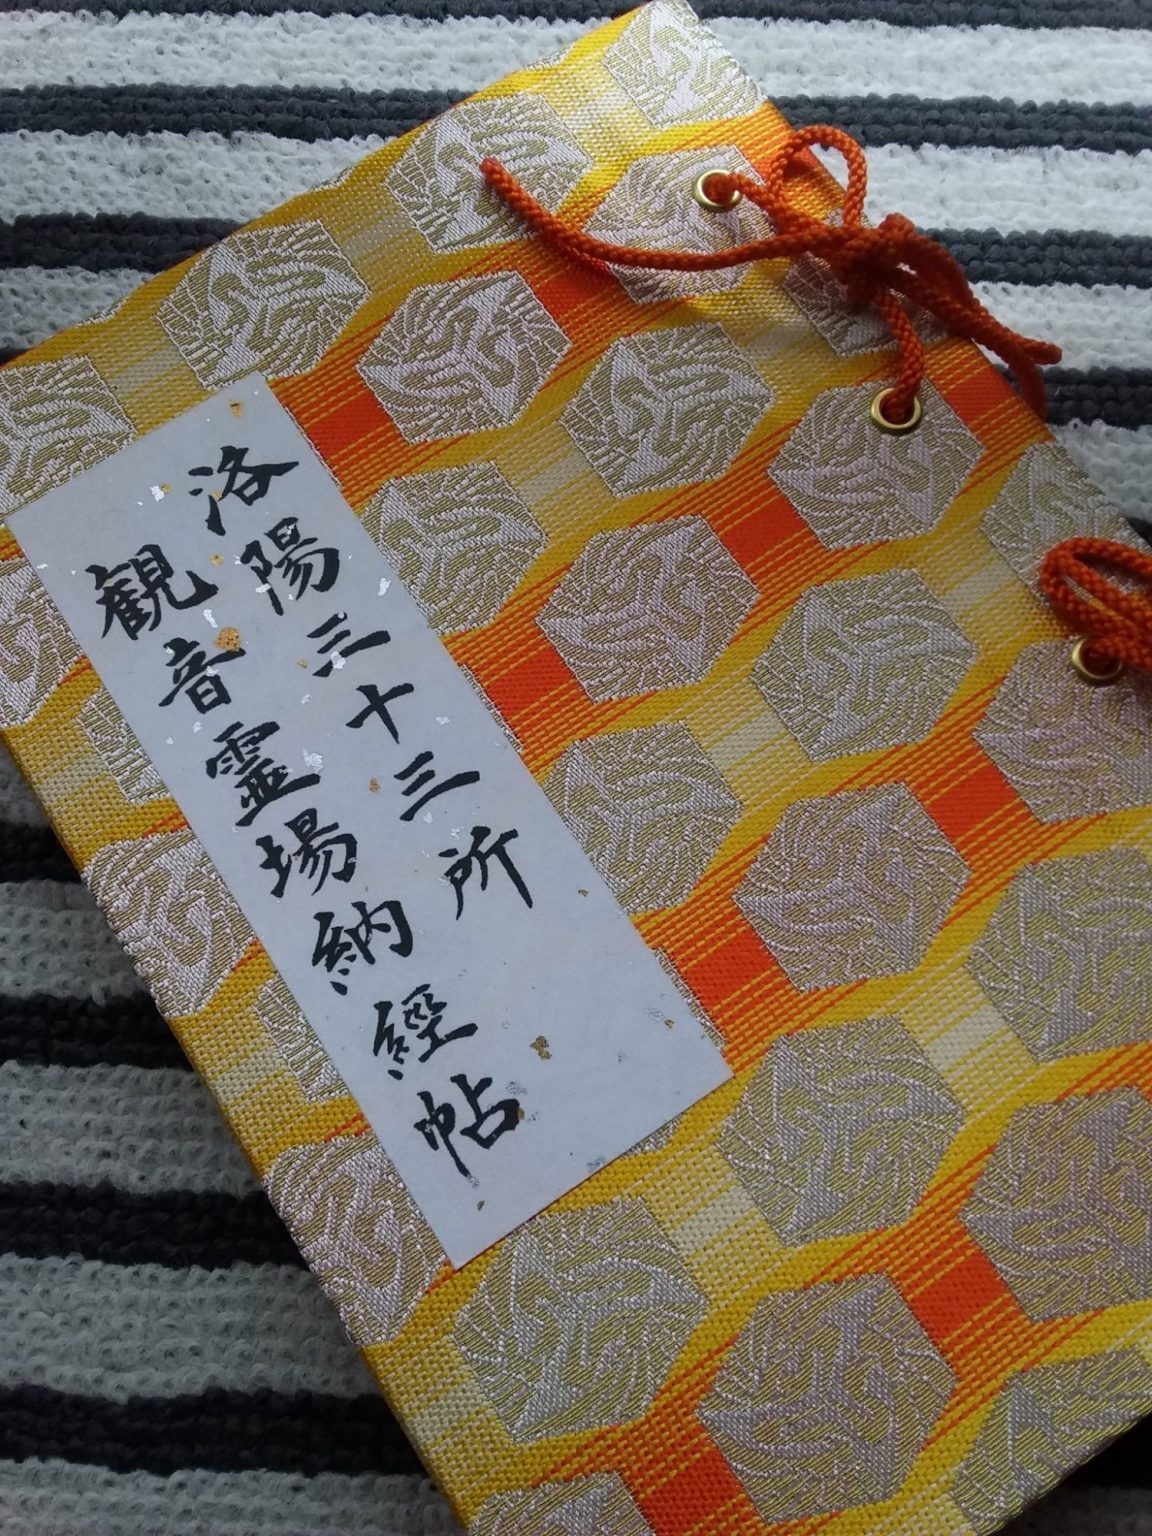 洛陽三十三所
観音霊場納経帖